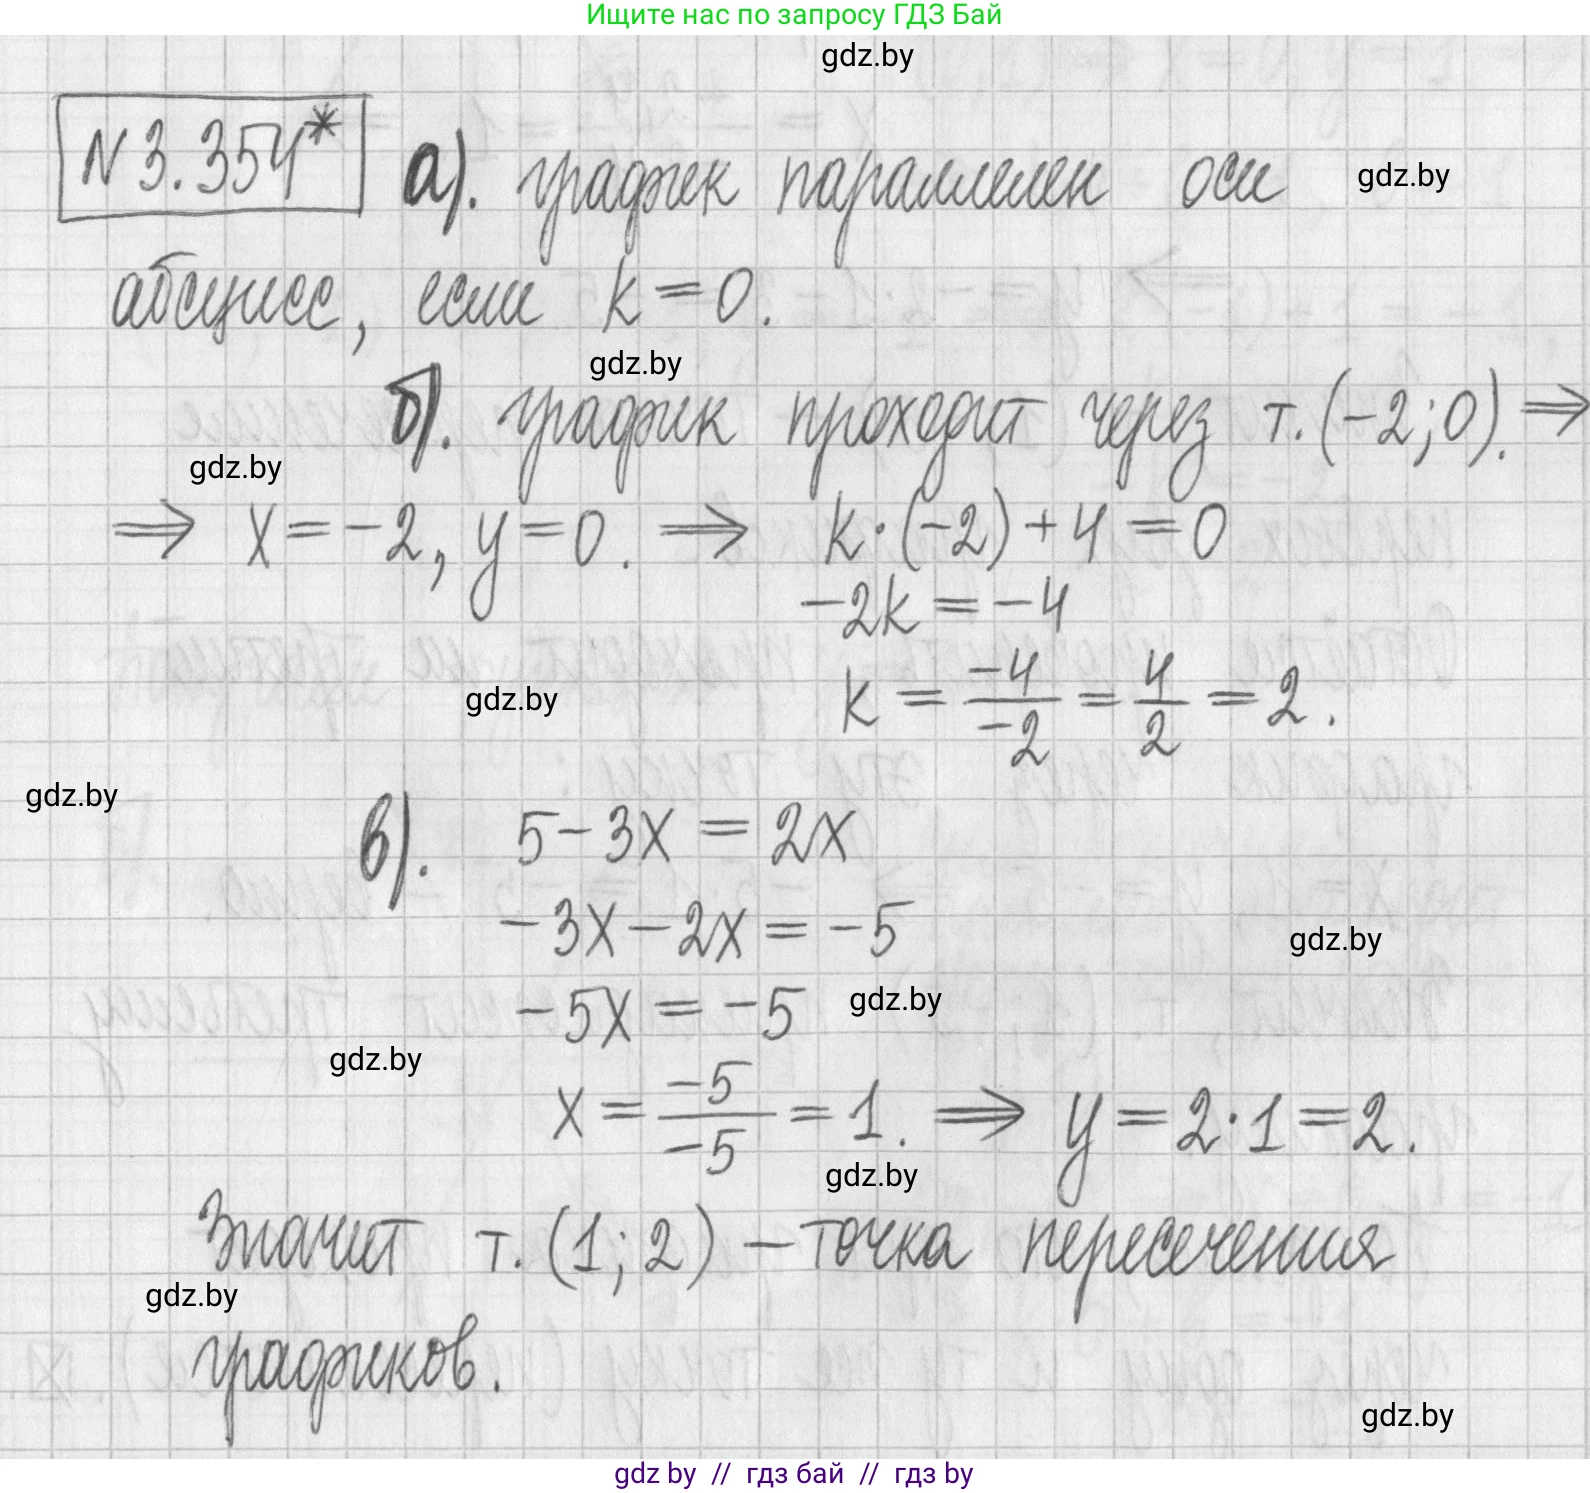 Ищите нас по запросу ГДЗ Бай
gdz.by
N 3.354* а). график параллелен оси
gdz.by
абсцисс, если k = 0.
gdz.by
б). график проходит через т. (-2; 0). ⇒
gdz.by
⇒ x = -2, y = 0. ⇒ k · (-2) + 4 = 0
-2k = -4
gdz.by
k = -4/-2 = 4/2 = 2.
gdz.by
в). 5 - 3x = 2x
-3x - 2x = -5
gdz.by
-5x = -5
gdz.by
gdz.by
x = -5/-5 = 1. ⇒ y = 2 · 1 = 2.
gdz.by
Значит т. (1; 2) — точка пересечения
gdz.by
графиков.
gdz.by
gdz by // гдз бай // гдз by